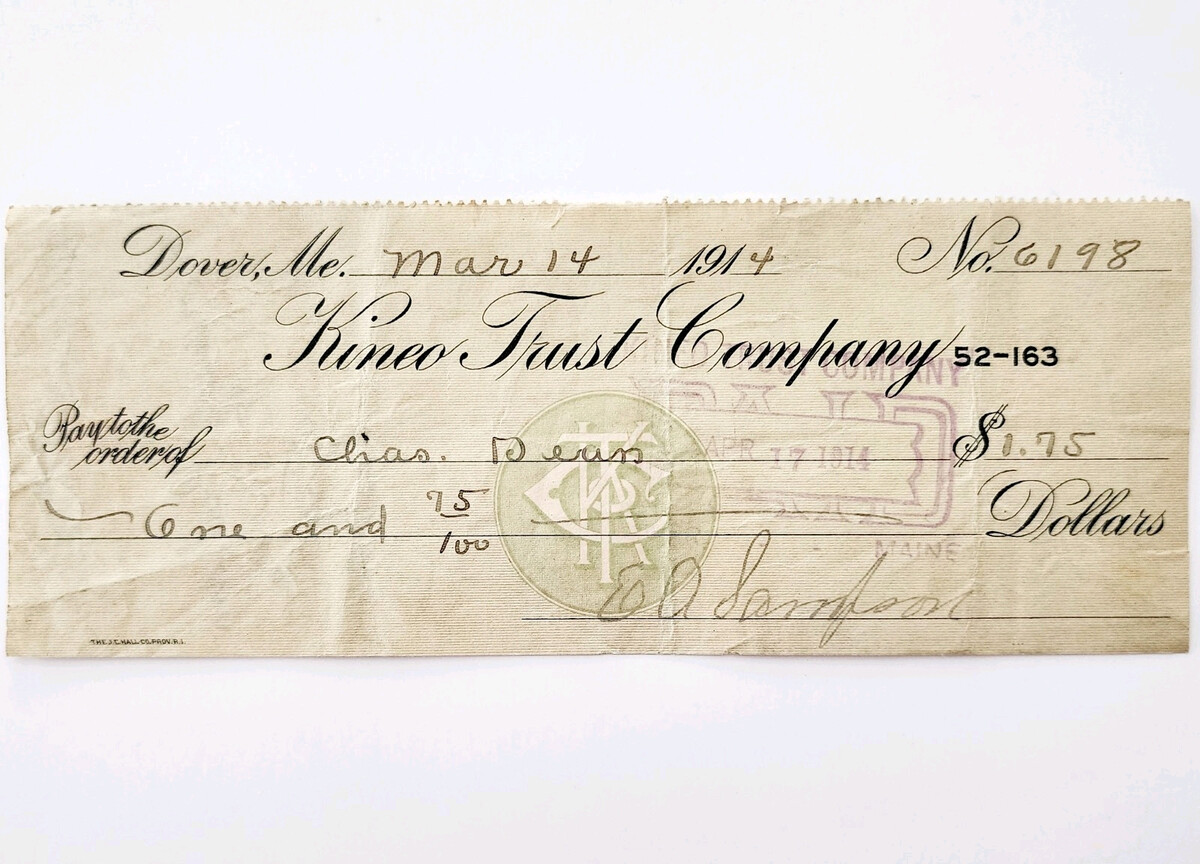 Dover, Me. Mar 14 1914 No. 6198
Kineo Trust Company 52-163
TRUST COMPANY
Pay to the order of Chas. Dean $1.75
PAID
APR 17 1914
One and 75/100 Dollars
MAINE
E A Sampson
THE J.C. HALL CO. PROV. R.I.